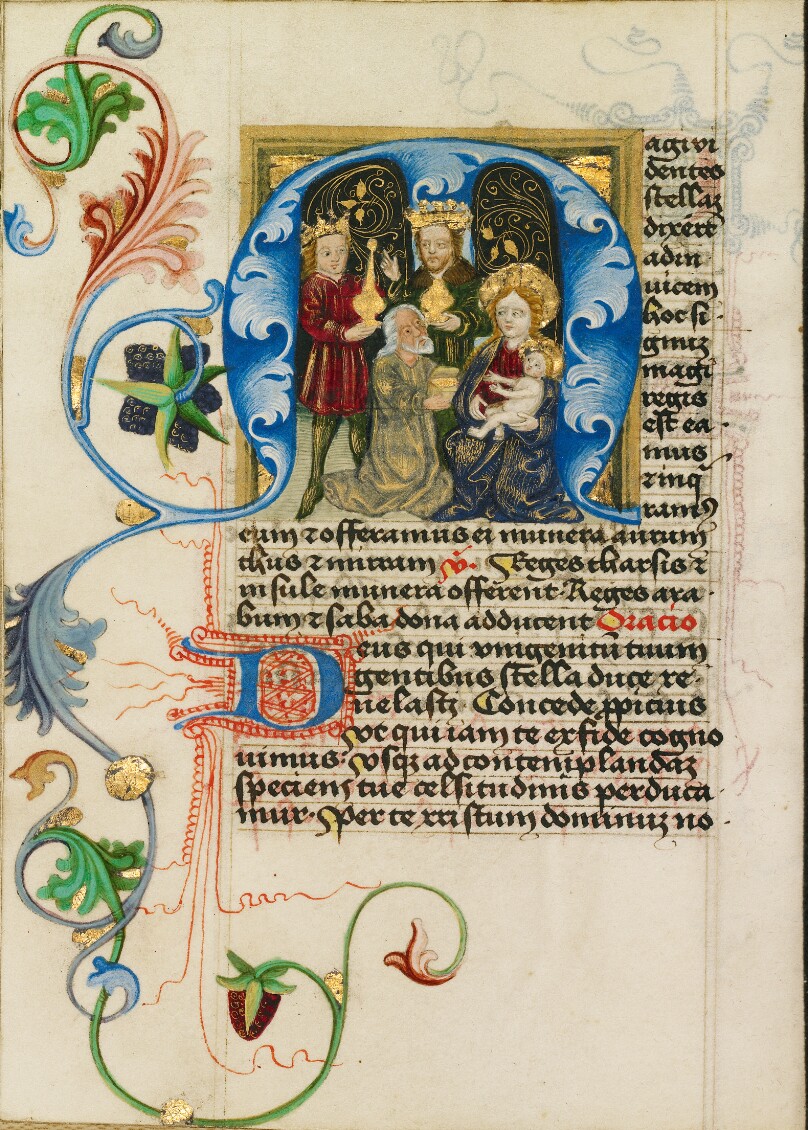 M agi vi
dentes
stellaz
dixert̄
ad in
uicem
hoc si
gnuz
magi
regis
est ea
mus
⁊ inq
ram⁹
eum ⁊ offeramus ei munera aurum
thus ⁊ mirram v̄. Reges tharsis ⁊
insule munera offerent. Reges ara
bum ⁊ saba dona adducent Oracio
Deus qui vnigenitū tuum
gentibus stella duce re
uelastj. Concede ppicius
vt qui iam te ex fide cogno
uimus. vsqz ad contemplandaz
speciem tue celsitudinis perduca
mur. Per te xristum dominuz no